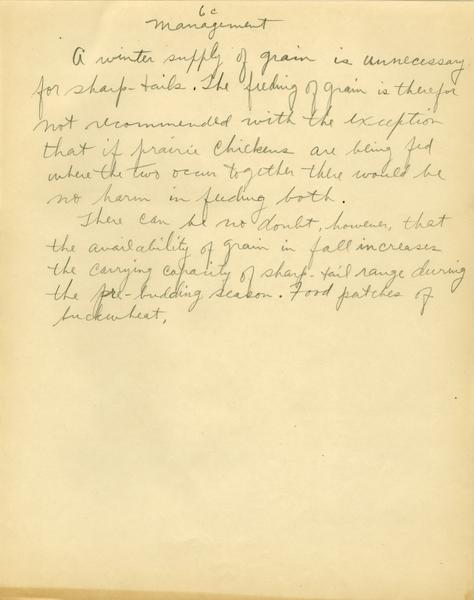 6c
Management
A winter supply of grain is unnecessary
for sharp-tails. The feeding of grain is therefor
not recommended with the exception
that if prairie chickens are being fed
where the two occur together there would be
no harm in feeding both.
There can be no doubt, however, that
the availability of grain in fall increases
the carrying capacity of sharp-tail range during
the pre-budding season. Food patches of
buckwheat,